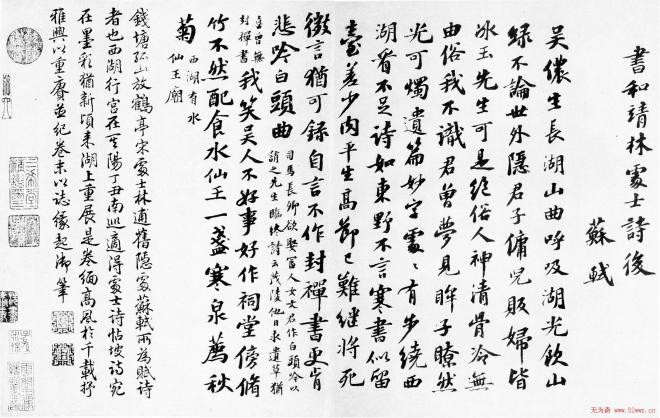 書和靖林處士詩後
蘇軾
吳儂生長湖山曲呼吸湖光飲山
綠不論世外隱君子傭兒販婦皆
冰玉先生可是絕俗人神清骨冷無
由俗我不識君曾夢見眸子瞭然
光可燭遺篇妙字處〻有步繞西
湖看不足詩如東野不言寒書似留
臺差少肉平生高節已難繼將死
微言猶可錄自言不作封禪書更肯
悲吟白頭曲
司馬長卿欲娶富人女文君作白頭吟以
誚之先生臨終詩云茂陵他日求遺草猶
喜曾無
封禪書
我笑吳人不好事好作祠堂傍脩
竹不然配食水仙王一盞寒泉薦秋
菊
西湖有水
仙王廟
錢塘孤山放鶴亭宋處士林逋舊隱處蘇軾所為賦詩
者也西湖行宮在其陽丁丑南巡適得處士詩帖坡詩宛
在墨彩猶新頃來湖上重展是卷緬高風於千載抒
雅興以重賡並紀卷末以誌緣起御筆
无为斋 www.52wwz.cn